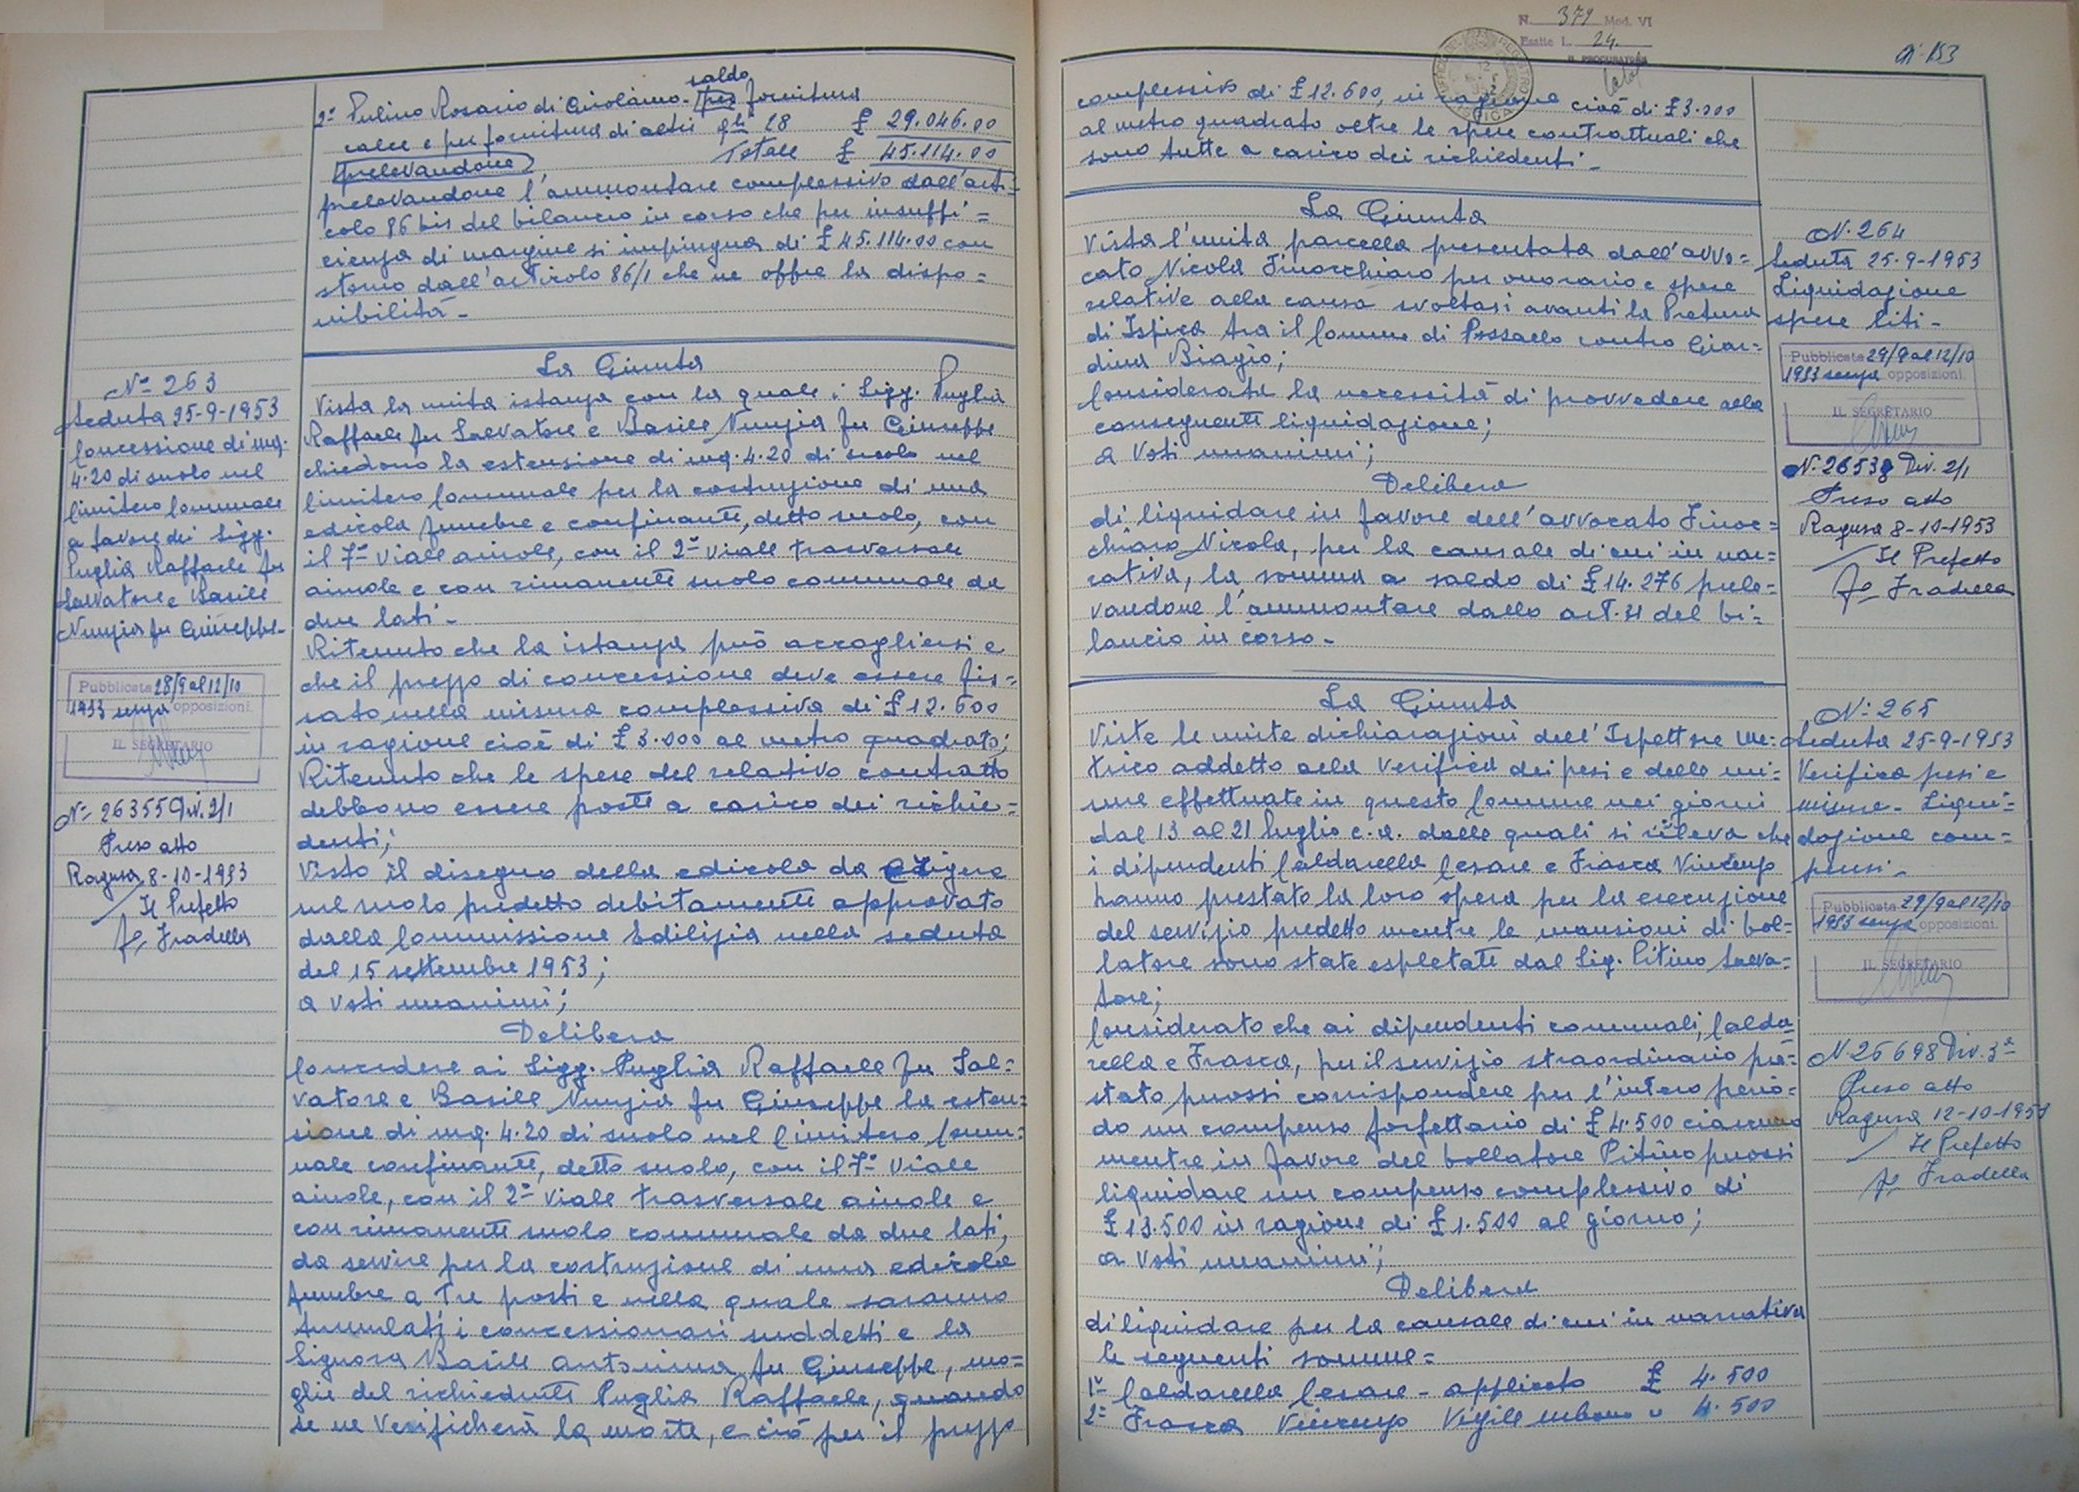 saldo
2º Pulino Rosario di Girolamo - per fornitura
calce e per fornitura di altri qli 28 £ 29.046.00
Totale £ 45.114.00
prelevandone
prelevandone l'ammontare complessivo dall'arti=
colo 86 bis del bilancio in corso che per insuffi=
cienza di margine si impingua di £ 45.114.00 con
storno dall'articolo 86/1 che ne offre la dispo=
nibilità -
Nº 263
Seduta 25-9-1953
Concessione di mq.
4.20 di suolo nel
Cimitero Comunale
a favore dei Sigg.
Puglia Raffaele fu
Salvatore e Basile
Nunzia fu Giuseppe -
Pubblicata 28/9 al 12/10
1953 senza opposizioni.
IL SEGRETARIO
Nº 26355 Div. 2/1
Preso atto
Ragusa 8-10-1953
Il Prefetto
Fradella
La Giunta
Vista la unita istanza con la quale i Sigg. Puglia
Raffaele fu Salvatore e Basile Nunzia fu Giuseppe
chiedono la estensione di mq. 4.20 di suolo nel
Cimitero Comunale per la costruzione di una
edicola funebre e confinante, detto suolo, con
il 7º viale aiuole, con il 2º viale trasversale
aiuole e con rimanente suolo comunale da
due lati -
Ritenuto che la istanza può accogliersi e
che il prezzo di concessione deve essere fis=
sato nella misura complessiva di £ 12.600
in ragione cioè di £ 3.000 al metro quadrato;
Ritenuto che le spese del relativo contratto
debbono essere poste a carico dei richie=
denti;
Visto il disegno della edicola da erigere
nel suolo predetto debitamente approvato
dalla Commissione Edilizia nella seduta
del 15 settembre 1953;
a voti unanimi;
Delibera
Concedere ai Sigg. Puglia Raffaele fu Sal=
vatore e Basile Nunzia fu Giuseppe la esten=
sione di mq. 4.20 di suolo nel Cimitero Comu=
nale confinante, detto suolo, con il 7º viale
aiuole, con il 2º viale trasversale aiuole e
con rimanente suolo comunale da due lati,
da servire per la costruzione di una edicola
funebre a tre posti e nella quale saranno
tumulati i concessionari suddetti e la
Signora Basile Antonina fu Giuseppe, mo=
glie del richiedente Puglia Raffaele, quando
se ne verificherà la morte, e ciò per il prezzo
N. 379 Mod. VI
Esatte L. 24.
IL PROCURATORE
complessivo di £ 12.600, in ragione cioè di £ 3.000
al metro quadrato oltre le spese contrattuali che
sono tutte a carico dei richiedenti -
La Giunta
Vista l'unita parcella presentata dall'avvo=
cato Nicola Finocchiaro per onorario e spese
relative alla causa svoltasi avanti la Pretura
di Ispica tra il Comune di Pozzallo contro Giar=
dina Biagio;
Considerata la necessità di provvedere alla
conseguente liquidazione;
a voti unanimi;
Delibera
di liquidare in favore dell'avvocato Finoc=
chiaro Nicola, per la causale di cui in nar=
rativa, la somma a saldo di £ 14.276 prele=
vandone l'ammontare dallo art. 31 del bi=
lancio in corso -
Nº 264
Seduta 25-9-1953
Liquidazione
spese liti -
Pubblicata 29/9 al 12/10
1953 senza opposizioni.
IL SEGRETARIO
Nº 26538 Div. 2/1
Preso atto
Ragusa 8-10-1953
Il Prefetto
Fradella
La Giunta
Viste le unite dichiarazioni dell'Ispettore Me=
trico addetto alla verifica dei pesi e delle mi=
sure effettuate in questo Comune nei giorni
dal 13 al 21 luglio c.a. dalle quali si rileva che
i dipendenti Caldarella Cesare e Frasca Vincenzo
hanno prestato la loro opera per la esecuzione
del servizio predetto mentre le mansioni di bol=
latore sono state espletate dal Sig. Pitino Salva=
tore;
Considerato che ai dipendenti comunali, Calda=
rella e Frasca, per il servizio straordinario pre=
stato puossi corrispondere per l'intero perio=
do un compenso forfettario di £ 4.500 ciascuno
mentre in favore del bollatore Pitino puossi
liquidare un compenso complessivo di
£ 13.500 in ragione di £ 1.500 al giorno;
a voti unanimi;
Delibera
di liquidare per la causale di cui in narrativa
le seguenti somme=
1º Caldarella Cesare - applicato £ 4.500
2º Frasca Vincenzo Vigile urbano " 4.500
Nº 265
Seduta 25-9-1953
Verifica pesi e
misure - Liqui=
dazione com=
pensi -
Pubblicata 29/9 al 12/10
1953 senza opposizioni.
IL SEGRETARIO
Nº 26698 Div. 3ª
Preso atto
Ragusa 12-10-1953
Il Prefetto
Fradella